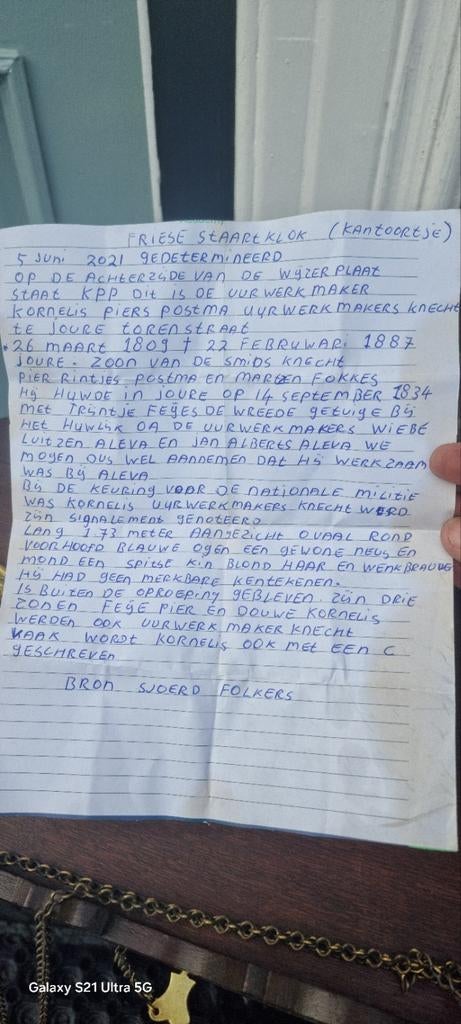 FRIESE STAARTKLOK (KANTOORTJE)
5 JUNI 2021 GEDETERMINEERD
OP DE ACHTERZIJDE VAN DE WIJZERPLAAT
STAAT KPP DIT IS DE UURWERKMAKER
KORNELIS PIERS POSTMA UURWERKMAKERS KNECHT
TE JOURE TORENSTRAAT
* 26 MAART 1809 † 22 FEBRUWARI 1887
JOURE. ZOON VAN DE SMIDS KNECHT
PIER RINTJES POSTMA EN MARTEN FOKKES
HIJ HUWDE IN JOURE OP 14 SEPTEMBER 1834
MET TRIJNTJE FEIJES DE WREEDE GETUIGE BIJ
HET HUWLIJK OA DE UURWERKMAKERS WIEBE
LUITZEN ALEVA EN JAN ALBERTS ALEVA WE
MOGEN DUS WEL AANNEMEN DAT HIJ WERKZAAM
WAS BIJ ALEVA
BIJ DE KEURING VOOR DE NATIONALE MILITIE
WAS KORNELIS UURWERKMAKERS KNECHT WERD
ZIJN SIGNALEMENT GENOTEERD
LANG 1.73 METER AANGEZICHT OVAAL ROND
VOORHOOFD BLAUWE OGEN EEN GEWONE NEUS EN
MOND EEN SPITSE KIN BLOND HAAR EN WENKBRAUWE
HIJ HAD GEEN MERKBARE KENTEKENEN.
IS BUITEN DE OPROEPING GEBLEVEN. ZIJN DRIE
ZONEN FEIJE PIER EN DOUWE KORNELIS
WERDEN OOK UURWERKMAKER KNECHT
VAAK WORDT KORNELIS OOK MET EEN C
GESCHREVEN
BRON SJOERD FOLKERS
Galaxy S21 Ultra 5G